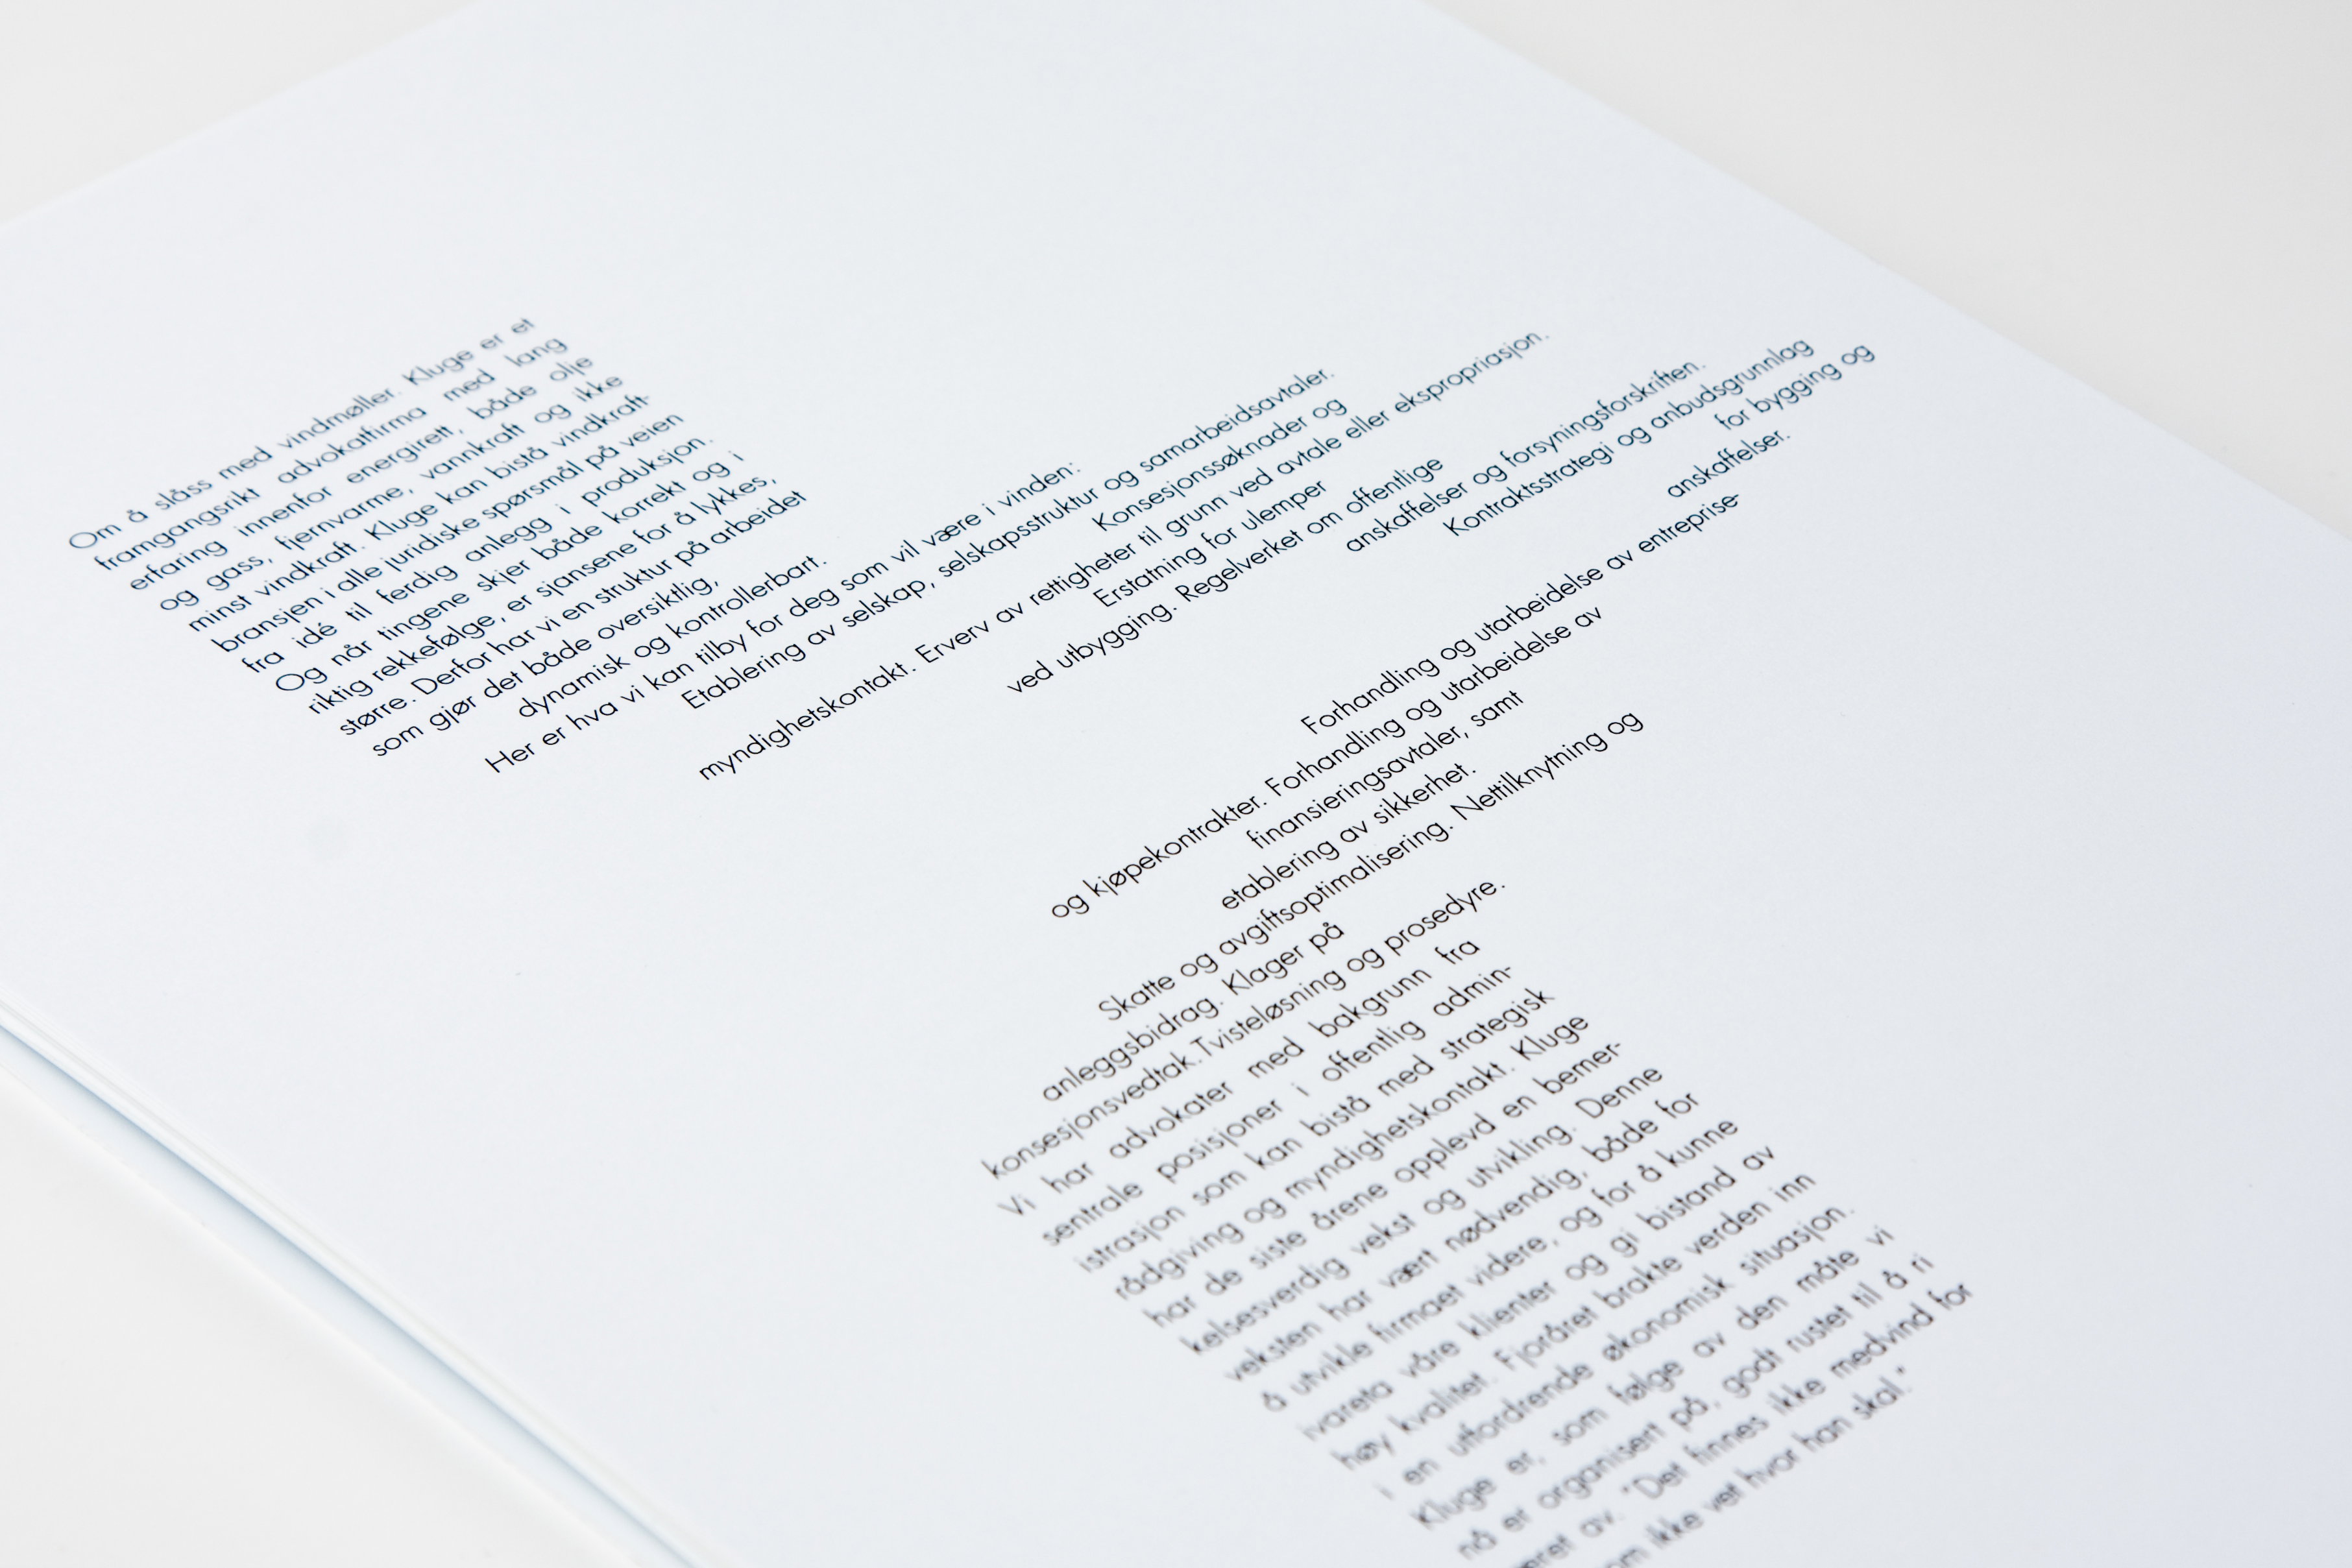 Om å slåss med vindmøller. Kluge er et
framgangsrikt advokatfirma med lang
erfaring innenfor energirett, både olje
og gass, fjernvarme, vannkraft og ikke
minst vindkraft. Kluge kan bistå vindkraft-
bransjen i alle juridiske spørsmål på veien
fra idé til ferdig anlegg i produksjon.
Og når tingene skjer både korrekt og i
riktig rekkefølge, er sjansene for å lykkes,
større. Derfor har vi en struktur på arbeidet
som gjør det både oversiktlig,
dynamisk og kontrollerbart.
Her er hva vi kan tilby for deg som vil være i vinden:
Etablering av selskap, selskapsstruktur og samarbeidsavtaler.
Konsesjonssøknader og
myndighetskontakt. Erverv av rettigheter til grunn ved avtale eller ekspropriasjon.
Erstatning for ulemper
ved utbygging. Regelverket om offentlige
anskaffelser og forsyningsforskriften.
Kontraktsstrategi og anbudsgrunnlag
for bygging og
anskaffelser.
Forhandling og utarbeidelse av entreprise-
og kjøpekontrakter. Forhandling og utarbeidelse av
finansieringsavtaler, samt
etablering av sikkerhet.
Skatte og avgiftsoptimalisering. Nettilknytning og
anleggsbidrag. Klager på
konsesjonsvedtak. Tvisteløsning og prosedyre.
Vi har advokater med bakgrunn fra
sentrale posisjoner i offentlig admin-
istrasjon som kan bistå med strategisk
rådgiving og myndighetskontakt. Kluge
har de siste årene opplevd en bemer-
kelsesverdig vekst og utvikling. Denne
veksten har vært nødvendig, både for
å utvikle firmaet videre, og for å kunne
ivareta våre klienter og gi bistand av
høy kvalitet. Fjoråret brakte verden inn
i en utfordrende økonomisk situasjon.
Kluge er, som følge av den måte vi
nå er organisert på, godt rustet til å ri
av. "Det finnes ikke medvind for
ikke vet hvor han skal."